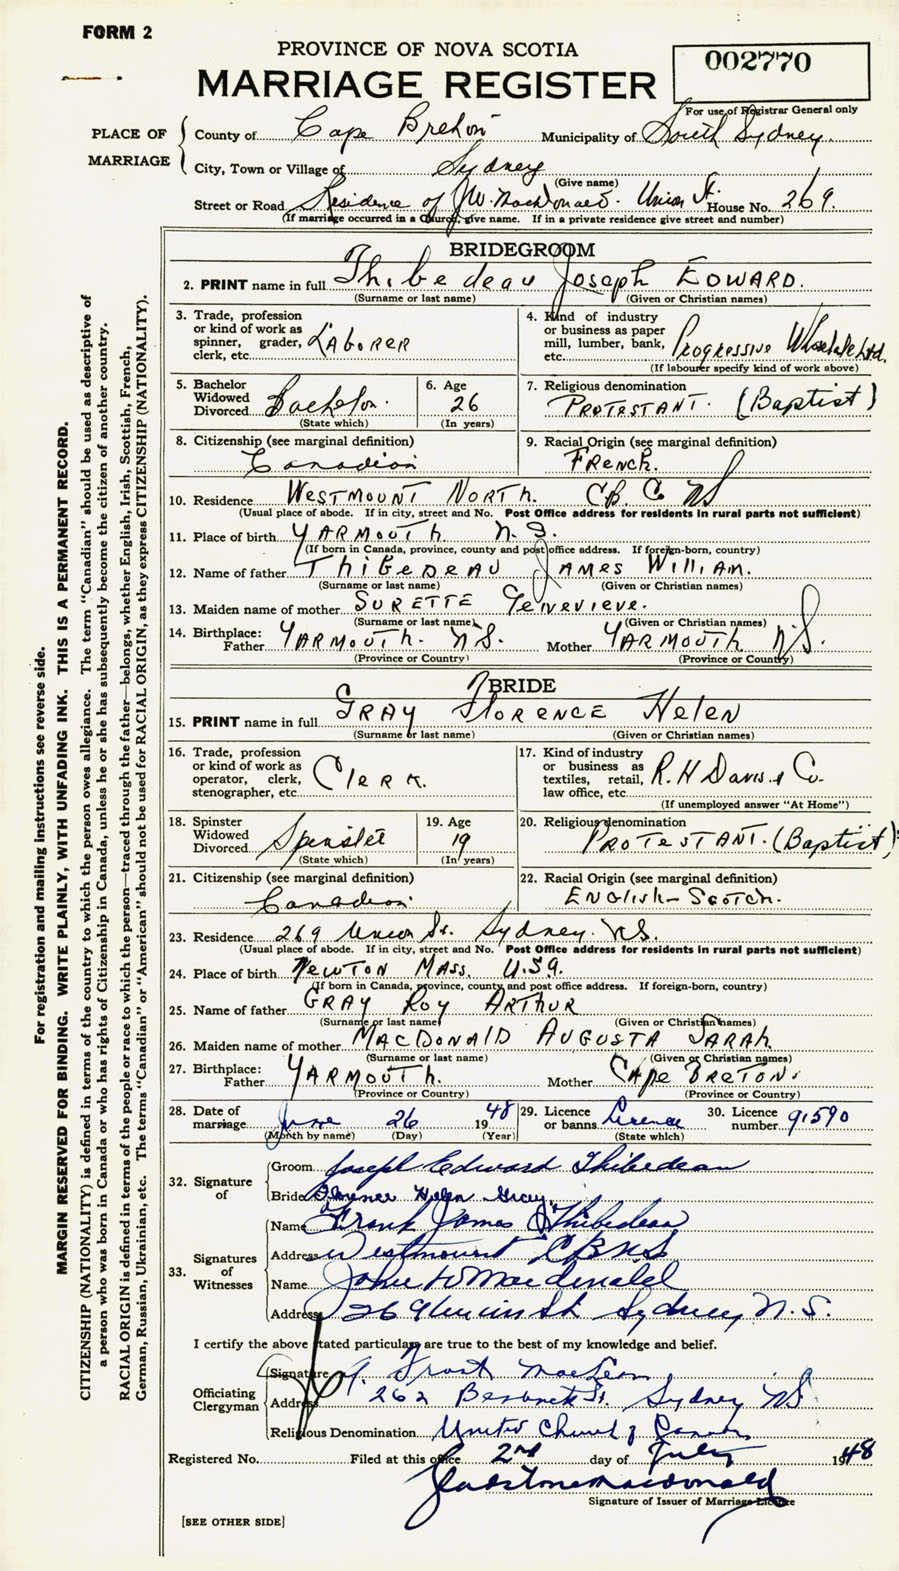 FORM 2
PROVINCE OF NOVA SCOTIA
MARRIAGE REGISTER
002770
For use of Registrar General only
PLACE OF MARRIAGE
County of Cape Breton Municipality of South Sydney.
City, Town or Village of Sydney
(Give name)
Street or Road Residence of J.W. MacDonald. Union St. House No. 269.
(If marriage occurred in a Church, give name. If in a private residence give street and number)
BRIDEGROOM
2. PRINT name in full Thibedeau Joseph EDWARD.
(Surname or last name) (Given or Christian names)
3. Trade, profession or kind of work as spinner, grader, clerk, etc. LABORER
4. Kind of industry or business as paper mill, lumber, bank, etc. Progressive Wholesale Ltd.
(If labourer specify kind of work above)
5. Bachelor Widowed Divorced Bachelor.
(State which)
6. Age 26
(In years)
7. Religious denomination PROTESTANT. (Baptist)
8. Citizenship (see marginal definition) Canadian
9. Racial Origin (see marginal definition) FRENCH.
10. Residence WESTMOUNT NORTH. C.B. Co NS
(Usual place of abode. If in city, street and No. Post Office address for residents in rural parts not sufficient)
11. Place of birth YARMOUTH N.S.
(If born in Canada, province, county and post office address. If foreign-born, country)
12. Name of father THIBEDEAU JAMES WILLIAM.
(Surname or last name) (Given or Christian names)
13. Maiden name of mother SURETTE Genevieve.
(Surname or last name) (Given or Christian names)
14. Birthplace: Father YARMOUTH. N.S. Mother YARMOUTH N.S.
(Province or Country) (Province or Country)
BRIDE
15. PRINT name in full GRAY FLORENCE HELEN
(Surname or last name) (Given or Christian names)
16. Trade, profession or kind of work as operator, clerk, stenographer, etc. Clerk.
17. Kind of industry or business as textiles, retail, law office, etc. R. H Davis & Co.
(If unemployed answer "At Home")
18. Spinster Widowed Divorced Spinster
(State which)
19. Age 19
(In years)
20. Religious denomination PROTESTANT. (Baptist)
21. Citizenship (see marginal definition) Canadian
22. Racial Origin (see marginal definition) ENGLISH-SCOTCH.
23. Residence 269 Union St. Sydney. N.S.
(Usual place of abode. If in city, street and No. Post Office address for residents in rural parts not sufficient)
24. Place of birth NEWTON MASS. U.S.A.
(If born in Canada, province, county and post office address. If foreign-born, country)
25. Name of father GRAY ROY ARTHUR
(Surname or last name) (Given or Christian names)
26. Maiden name of mother MACDONALD AUGUSTA SARAH
(Surname or last name) (Given or Christian names)
27. Birthplace: Father YARMOUTH. Mother CAPE BRETON.
(Province or Country) (Province or Country)
28. Date of marriage June 26 1948
(Month by name) (Day) (Year)
29. Licence or banns License
(State which)
30. Licence number 91590
32. Signature of
Groom Joseph Edward Thibedeau
Bride Florence Helen Gray
33. Signatures of Witnesses
Name Frank James Thibedeau
Address Westmount C.B. N.S
Name John W MacDonald
Address 269 Union St. Sydney, N.S.
I certify the above stated particulars are true to the best of my knowledge and belief.
Officiating Clergyman
Signature A. Frank MacLean
Address 262 Bentinck St. Sydney NS
Religious Denomination United Church of Canada
Registered No. Filed at this office 2nd day of July 1948
Gladstone MacDonald
Signature of Issuer of Marriage Licence
[SEE OTHER SIDE]
For registration and mailing instructions see reverse side.
MARGIN RESERVED FOR BINDING. WRITE PLAINLY, WITH UNFADING INK. THIS IS A PERMANENT RECORD.
CITIZENSHIP (NATIONALITY) is defined in terms of the country to which the person owes allegiance. The term "Canadian" should be used as descriptive of
a person who was born in Canada or who has rights of Citizenship in Canada, unless he or she has subsequently become the citizen of another country.
RACIAL ORIGIN is defined in terms of the people or race to which the person—traced through the father—belongs, whether English, Irish, Scottish, French,
German, Russian, Ukrainian, etc. The terms "Canadian" or "American" should not be used for RACIAL ORIGIN, as they express CITIZENSHIP (NATIONALITY).